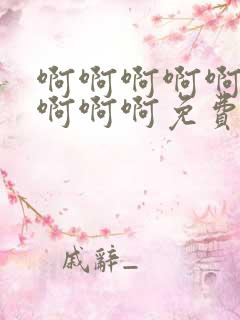 啊啊啊啊啊
啊啊啊免費
戚辭_